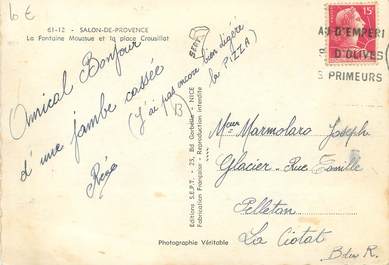 6 €
61-12 - SALON-DE-PROVENCE
La Fontaine Moussue et la place Crousillat
Amical Bonjour
d'une jambe cassée
(J'ai pas encore bien digéré
la PIZZA)
SEPT
Editions S.E.P.T. - 25, Bd Gorbella - NICE
Fabrication Française - Reproduction interdite
Photographie Véritable
15F
AU D'EMPERI
S D'OLIVES
S PRIMEURS
Mr Marmolaro Joseph
Glacier - Rue Camille
Pelletan
La Ciotat
B du R.